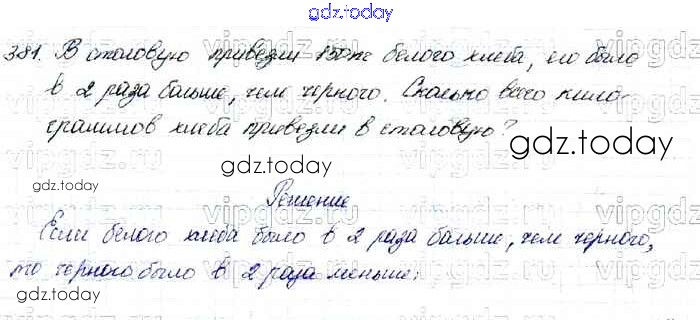 gdz.today
381. В столовую привезли 150 кг белого хлеба, его было
в 2 раза больше, чем черного. Сколько всего кило
граммов хлеба привезли в столовую?
gdz.today
gdz.today
gdz.today
Решение
Если белого хлеба было в 2 раза больше, чем черного,
то черного было в 2 раза меньше:
gdz.today